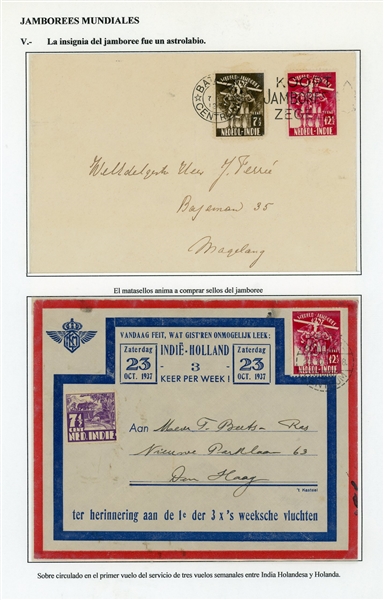 JAMBOREES MUNDIALES
V.- La insignia del jamboree fue un astrolabio.
CENTR
7½
NEDERL-INDIË
12½
NEDERL-INDIË
JAMBOR
ZEG
J.
35
Magelang
El matasellos anima a comprar sellos del jamboree
VANDAAG FEIT, WAT GIST'REN ONMOGELIJK LEEK:
Zaterdag
23
OCT. 1937
INDIË-HOLLAND
- 3 -
KEER PER WEEK!
Zaterdag
23
OCT. 1937
12½
NEDERL-INDIË
7½ CENT
NED. INDIE
Aan
Nieuwe Parklaan 63
Den Haag
't Kasteel
ter herinnering aan de 1e der 3 x 's weeksche vluchten
Sobre circulado en el primer vuelo del servicio de tres vuelos semanales entre India Holandesa y Holanda.